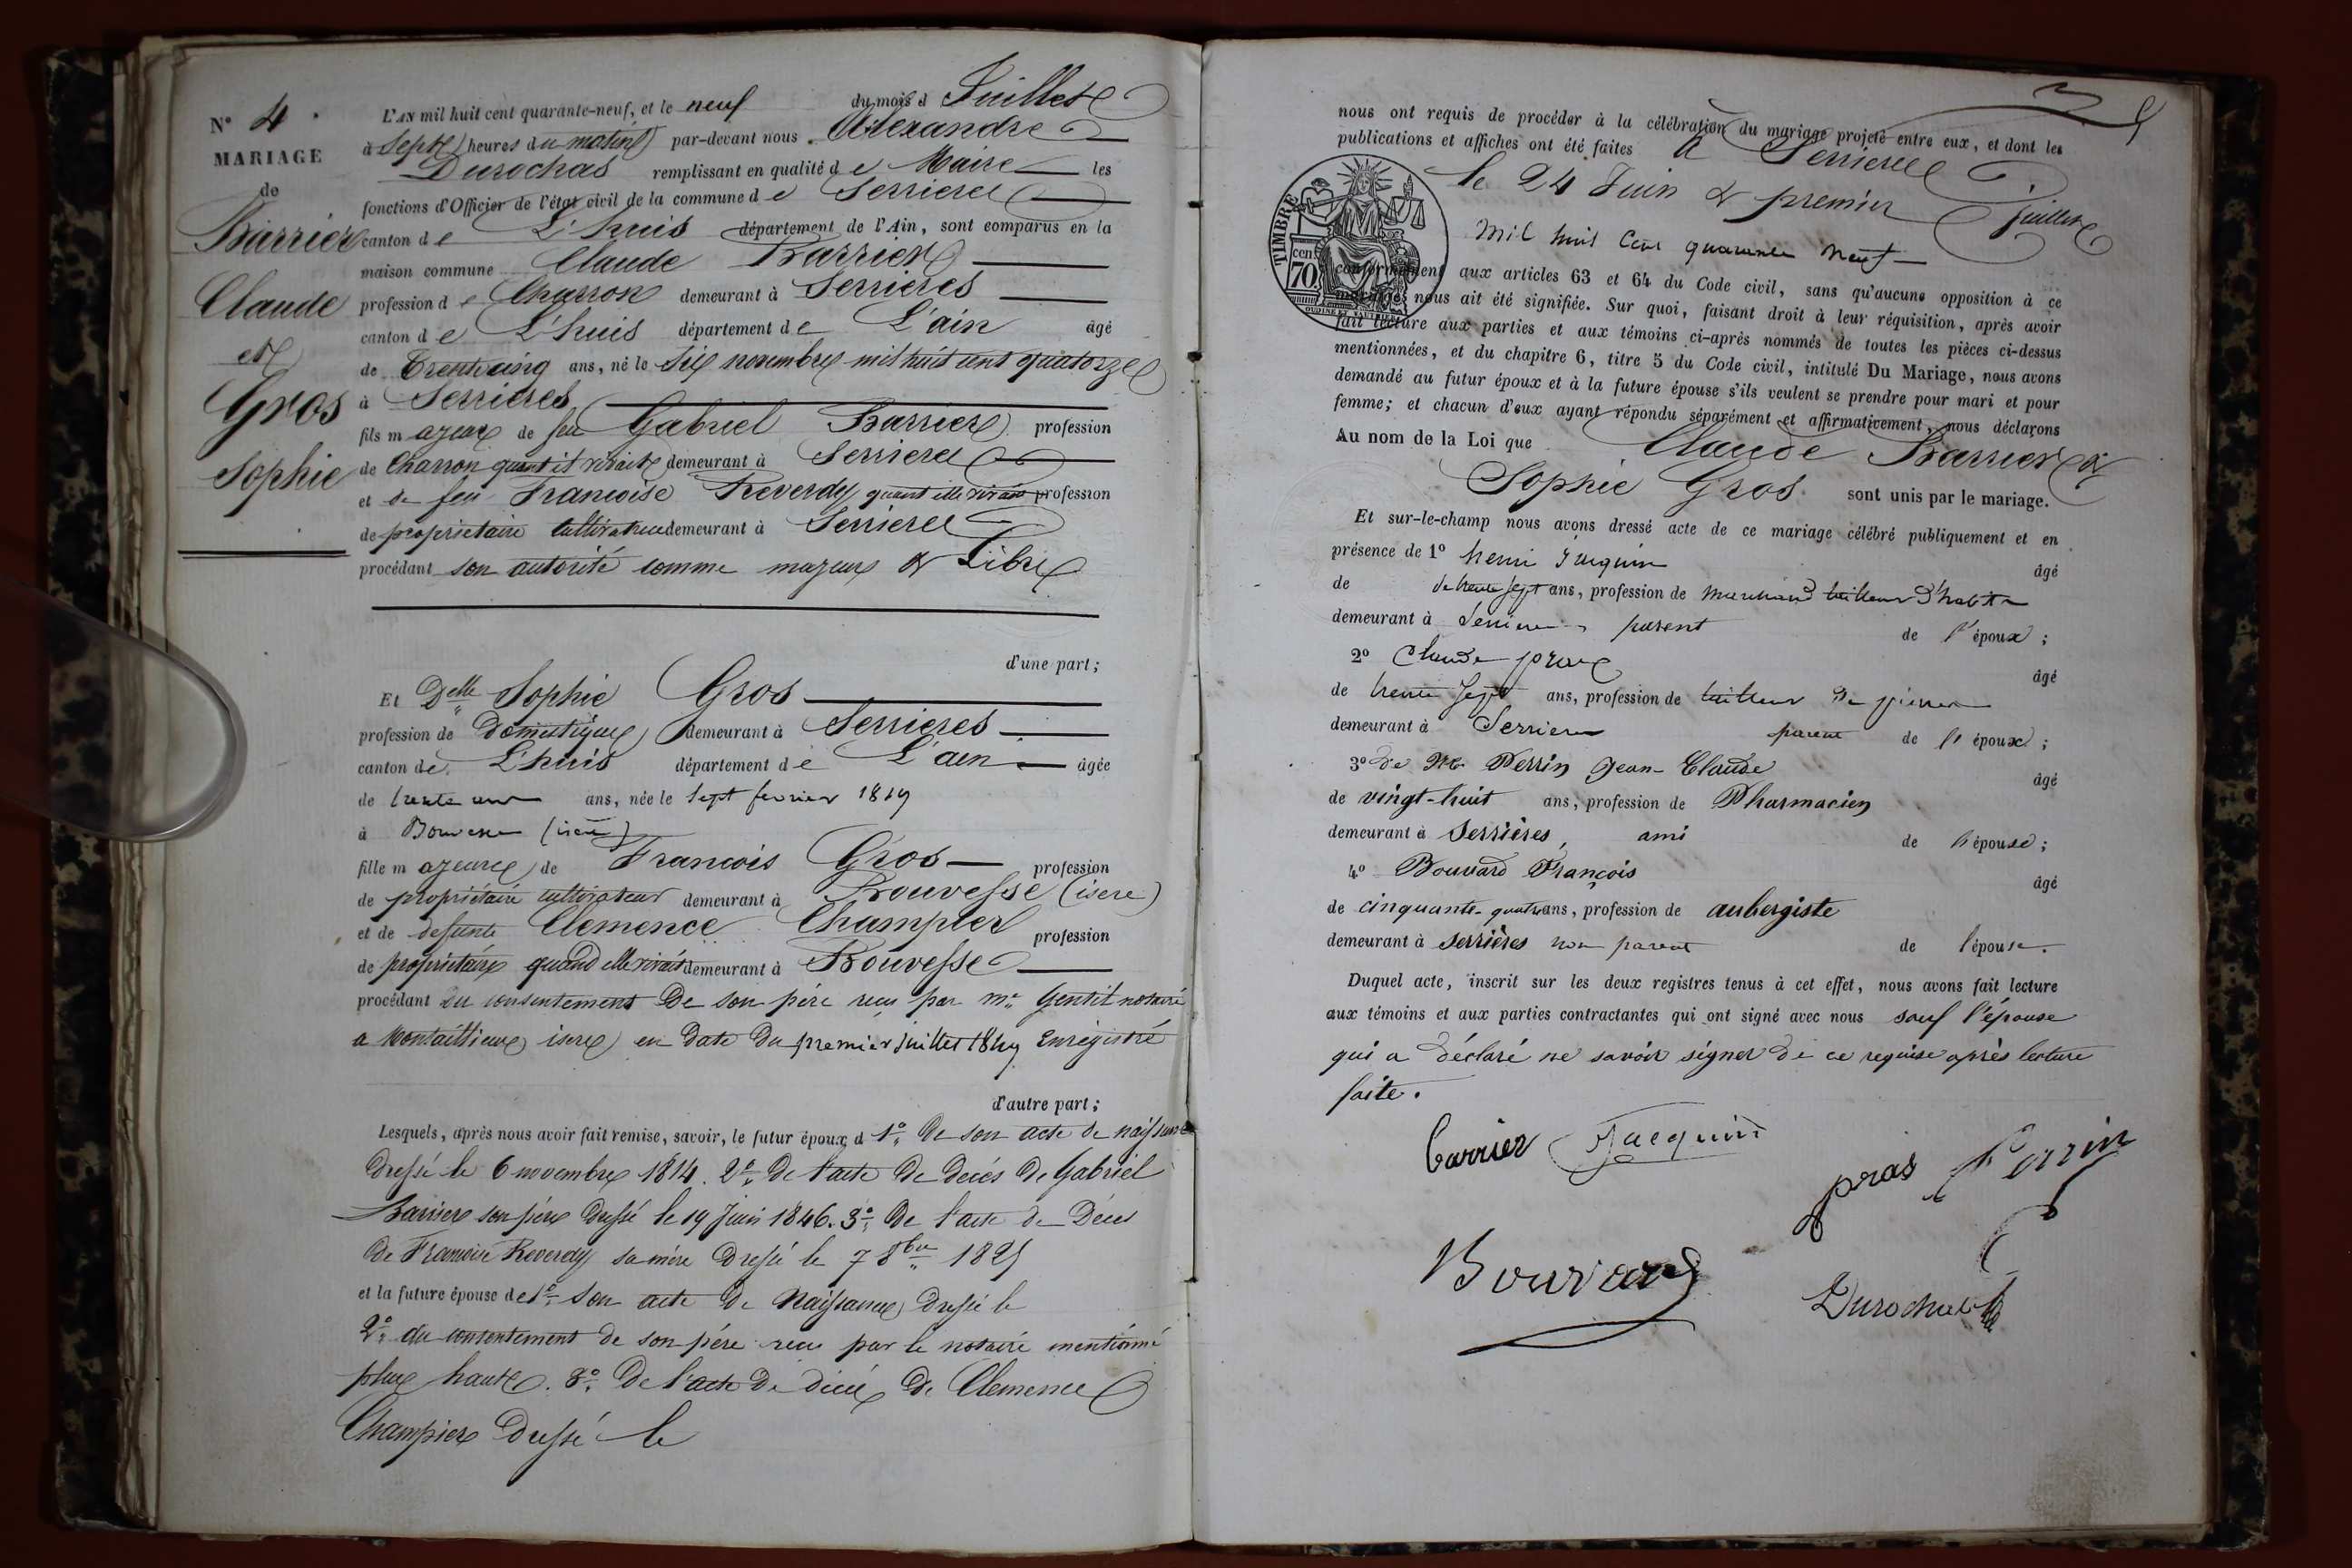 N° 4.
MARIAGE
de
Barrier
Claude
et
Gros
Sophie
L'AN mil huit cent quarante-neuf, et le neuf du mois d Juillet
à Sept heures du matin par-devant nous Alexandre
Durochas remplissant en qualité de Maire les
fonctions d'Officier de l'état civil de la commune de Serrieres
canton de L'huis département de l'Ain, sont comparus en la
maison commune Claude Barrier
profession de Charron demeurant à Serrieres
canton de L'huis département de L'ain âgé
de Trente cinq ans, né le Six novembre mil huit cent quatorze
à Serrieres
fils majeur de feu Gabriel Barrier profession
de Charron quant il vivait demeurant à Serrieres
et de feu Francoise Reverdy quant elle vivait profession
de propriétaire cultivatrice demeurant à Serrieres
procédant son autorité comme majeur & Libre
d'une part;
Et Delle Sophie Gros
profession de Domestique demeurant à Serrieres
canton de L'huis département de L'ain âgée
de trente ans, née le Sept fevrier 1819
à Bouvesse (isere)
fille majeure de Francois Gros profession
de propriétaire cultivateur demeurant à Bouvesse (isere)
et de defunte Clemence Champier profession
de propriétaire quand elle vivait demeurant à Bouvesse
procédant du consentement De son père reçu par me Gentil notaire
a Montallieux isere en Date Du premier Juillet 1849 Enregistré
d'autre part;
Lesquels, après nous avoir fait remise, savoir, le futur époux d 1° De son acte de naissance
Dressé le 6 novembre 1814. 2° De l'acte De décés De Gabriel
Barrier son père Dressé le 19 Juin 1846. 3° De l'acte de Déces
De Francoise Reverdy sa mère Dressé le 7 8bre 1825
et la future épouse de 1° Son acte De Naissance Dressé le
2° du consentement de son père recu par le notaire mentionné
plus haut. 3° De l'acte De décès De Clemence
Champier Dressé le
nous ont requis de procéder à la célébration du mariage projeté entre eux, et dont les
publications et affiches ont été faites A Serrieres
le 24 Juin & premier juillet
Mil huit Cent quarante Neuf
TIMBRE
70
cen
OUDINÉ ET VAUTHIER
conformément aux articles 63 et 64 du Code civil, sans qu'aucune opposition à ce
mariage nous ait été signifiée. Sur quoi, faisant droit à leur réquisition, après avoir
fait lecture aux parties et aux témoins ci-après nommés de toutes les pièces ci-dessus
mentionnées, et du chapitre 6, titre 5 du Code civil, intitulé Du Mariage, nous avons
demandé au futur époux et à la future épouse s'ils veulent se prendre pour mari et pour
femme; et chacun d'eux ayant répondu séparément et affirmativement, nous déclarons
Au nom de la Loi que Claude Barrier &
Sophie Gros sont unis par le mariage.
Et sur-le-champ nous avons dressé acte de ce mariage célébré publiquement et en
présence de 1° henri Jacquin âgé
de de trente Sept ans, profession de Marchand tailleur D'habits
demeurant à Serrieres parent de l'époux;
2° Claude pras âgé
de trente Sept ans, profession de tailleur De pierres
demeurant à Serrieres parent de l'époux;
3° de Mr Perrin Jean-Claude âgé
de vingt-huit ans, profession de Pharmacien
demeurant à Serrières, ami de l'épouse;
4° Bouvard François âgé
de cinquante-quatre ans, profession de aubergiste
demeurant à serrières non parent de l'épouse.
Duquel acte, inscrit sur les deux registres tenus à cet effet, nous avons fait lecture
aux témoins et aux parties contractantes qui ont signé avec nous sauf l'épouse
qui a déclaré ne savoir signer de ce requise après lecture
faite.
barrier Jacquin
pras Perrin
Bouvard
Durochas